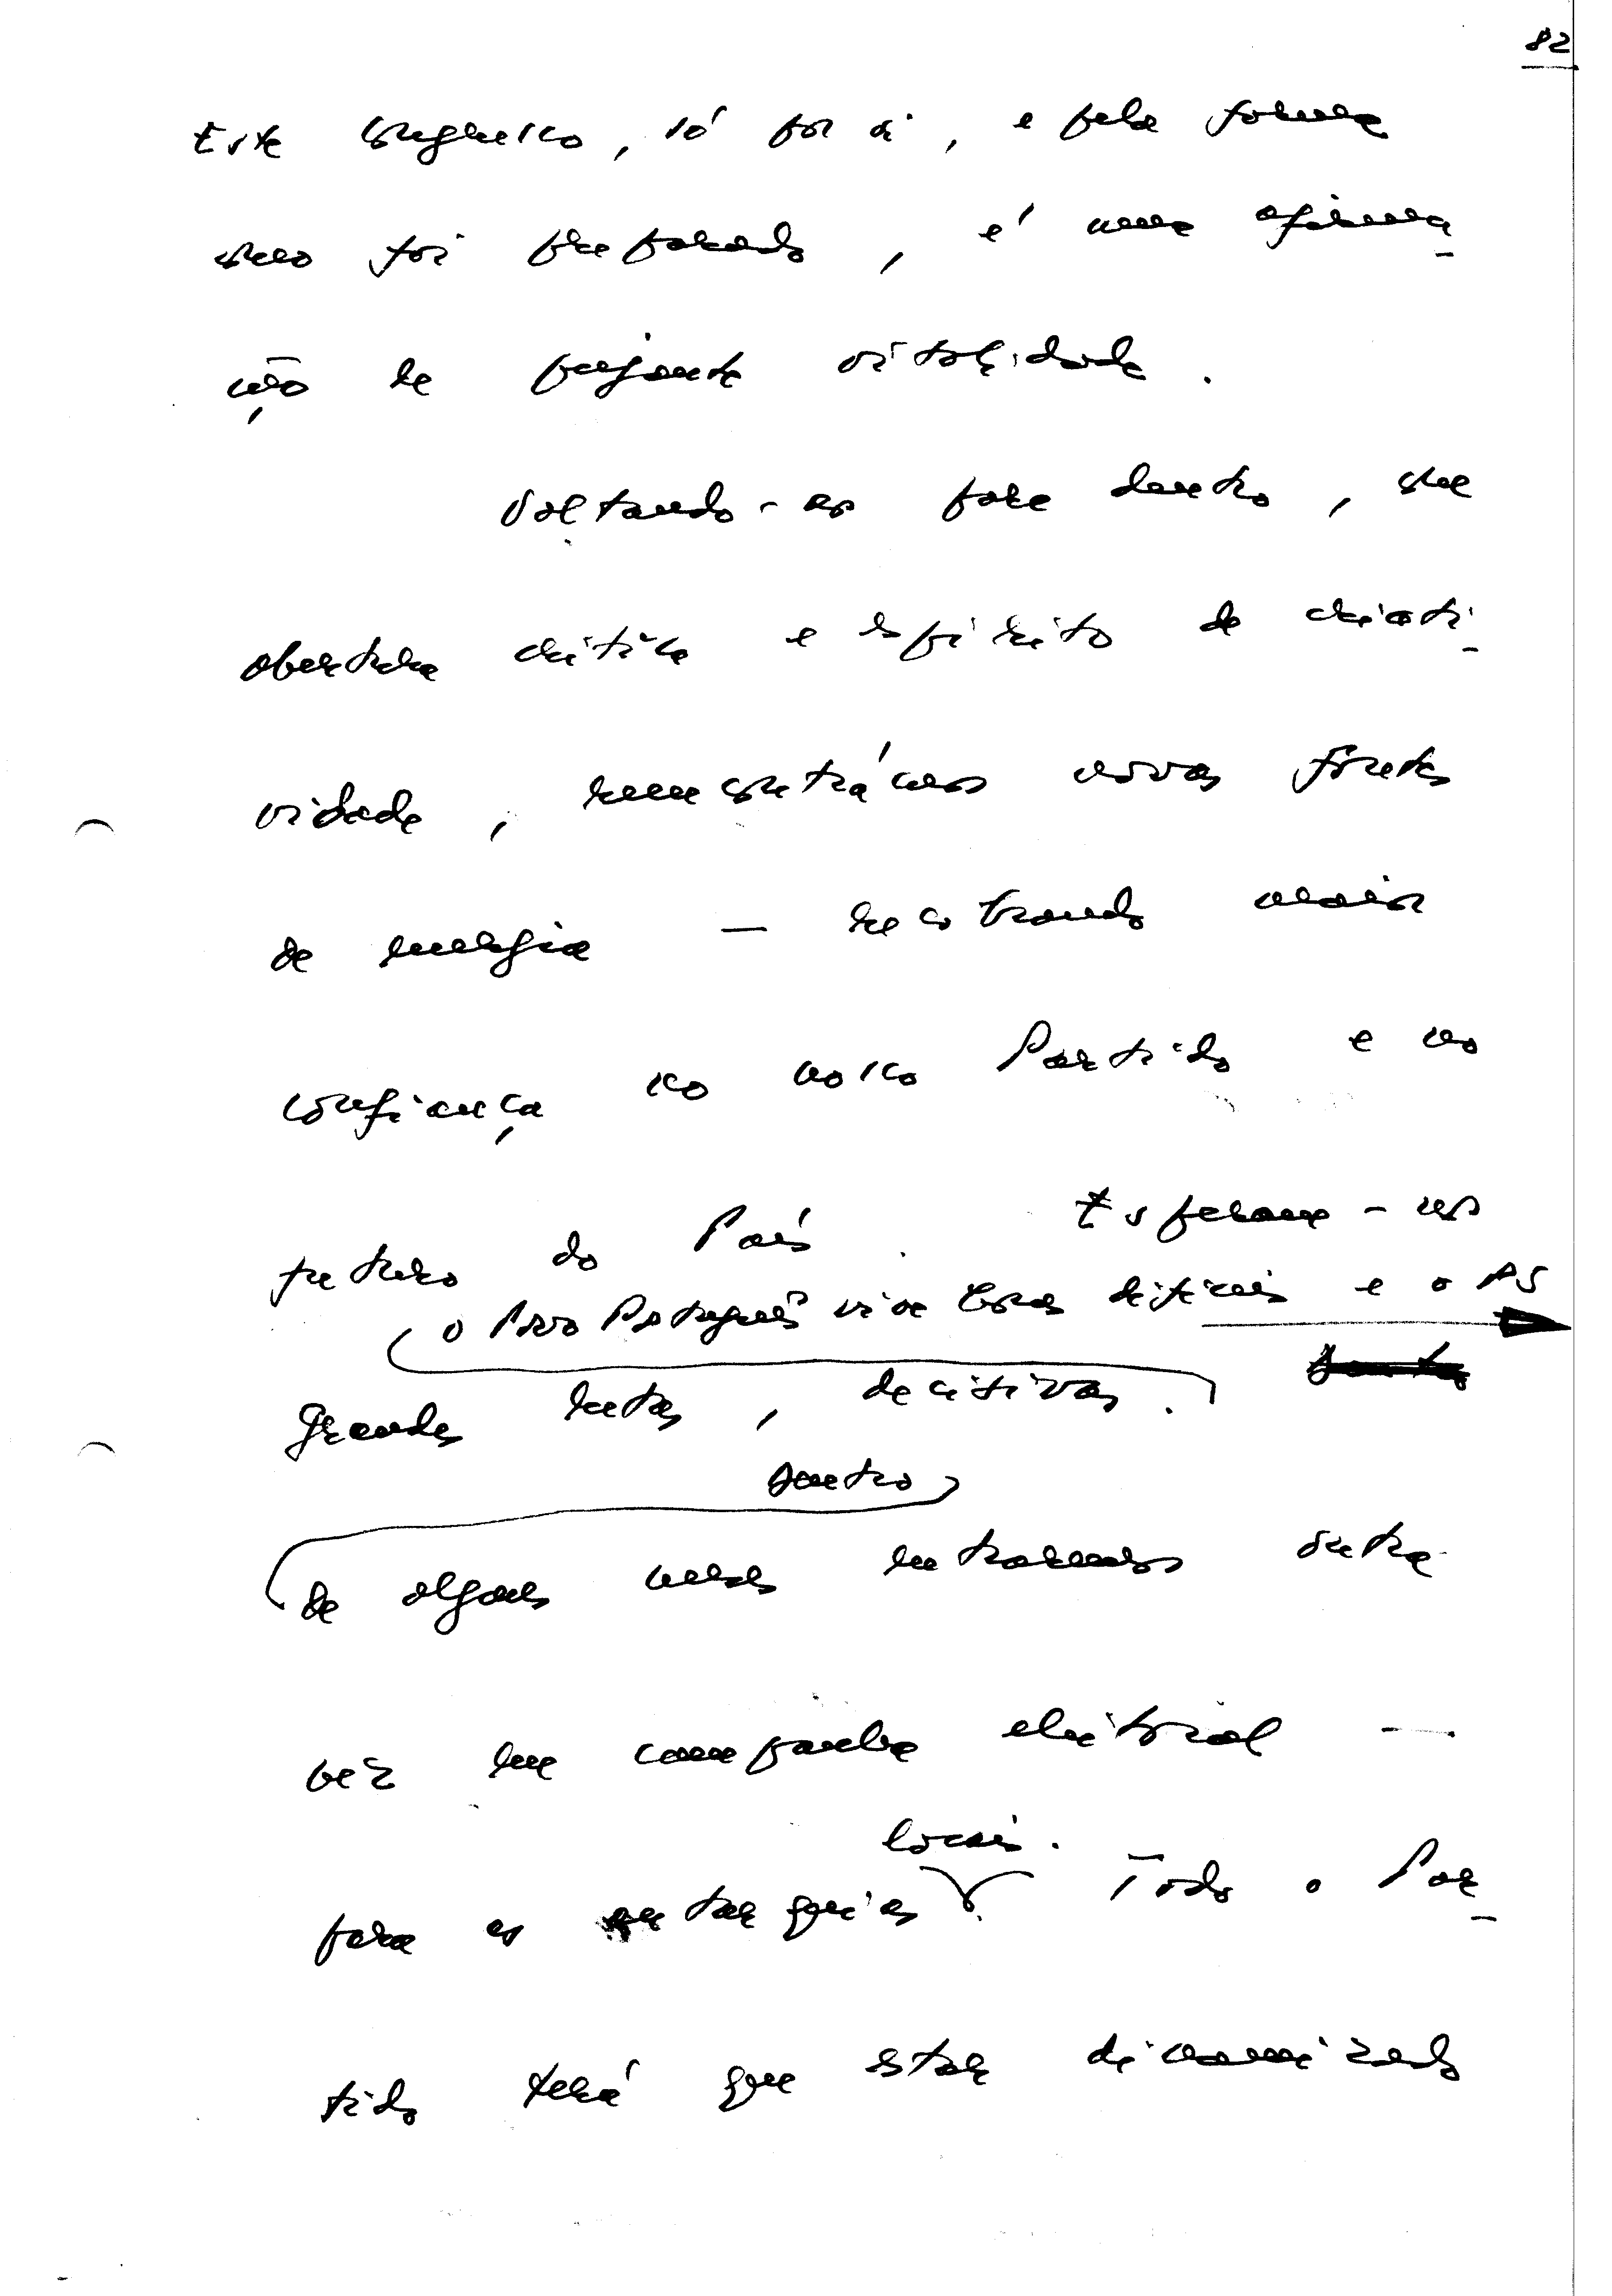 82
Este Congresso, só por si, e pela forma
como foi preparado, é uma afirma-
ção de pujante vitalidade.
Voltando-nos para dentro, com
abertura crítica e espírito de criati-
vidade, reencontrámos novas fontes
de energia — recobrando maior
confiança no nosso Partido e no
futuro do País. Esperam-nos
O Povo Português vive horas difíceis e o PS
grandes lutas, decisivas.
Dentro
de alguns meses entraremos outra
vez em campanha eleitoral —
locais.
para as autarquias. Todo o Par-
tido terá que estar dinamizado